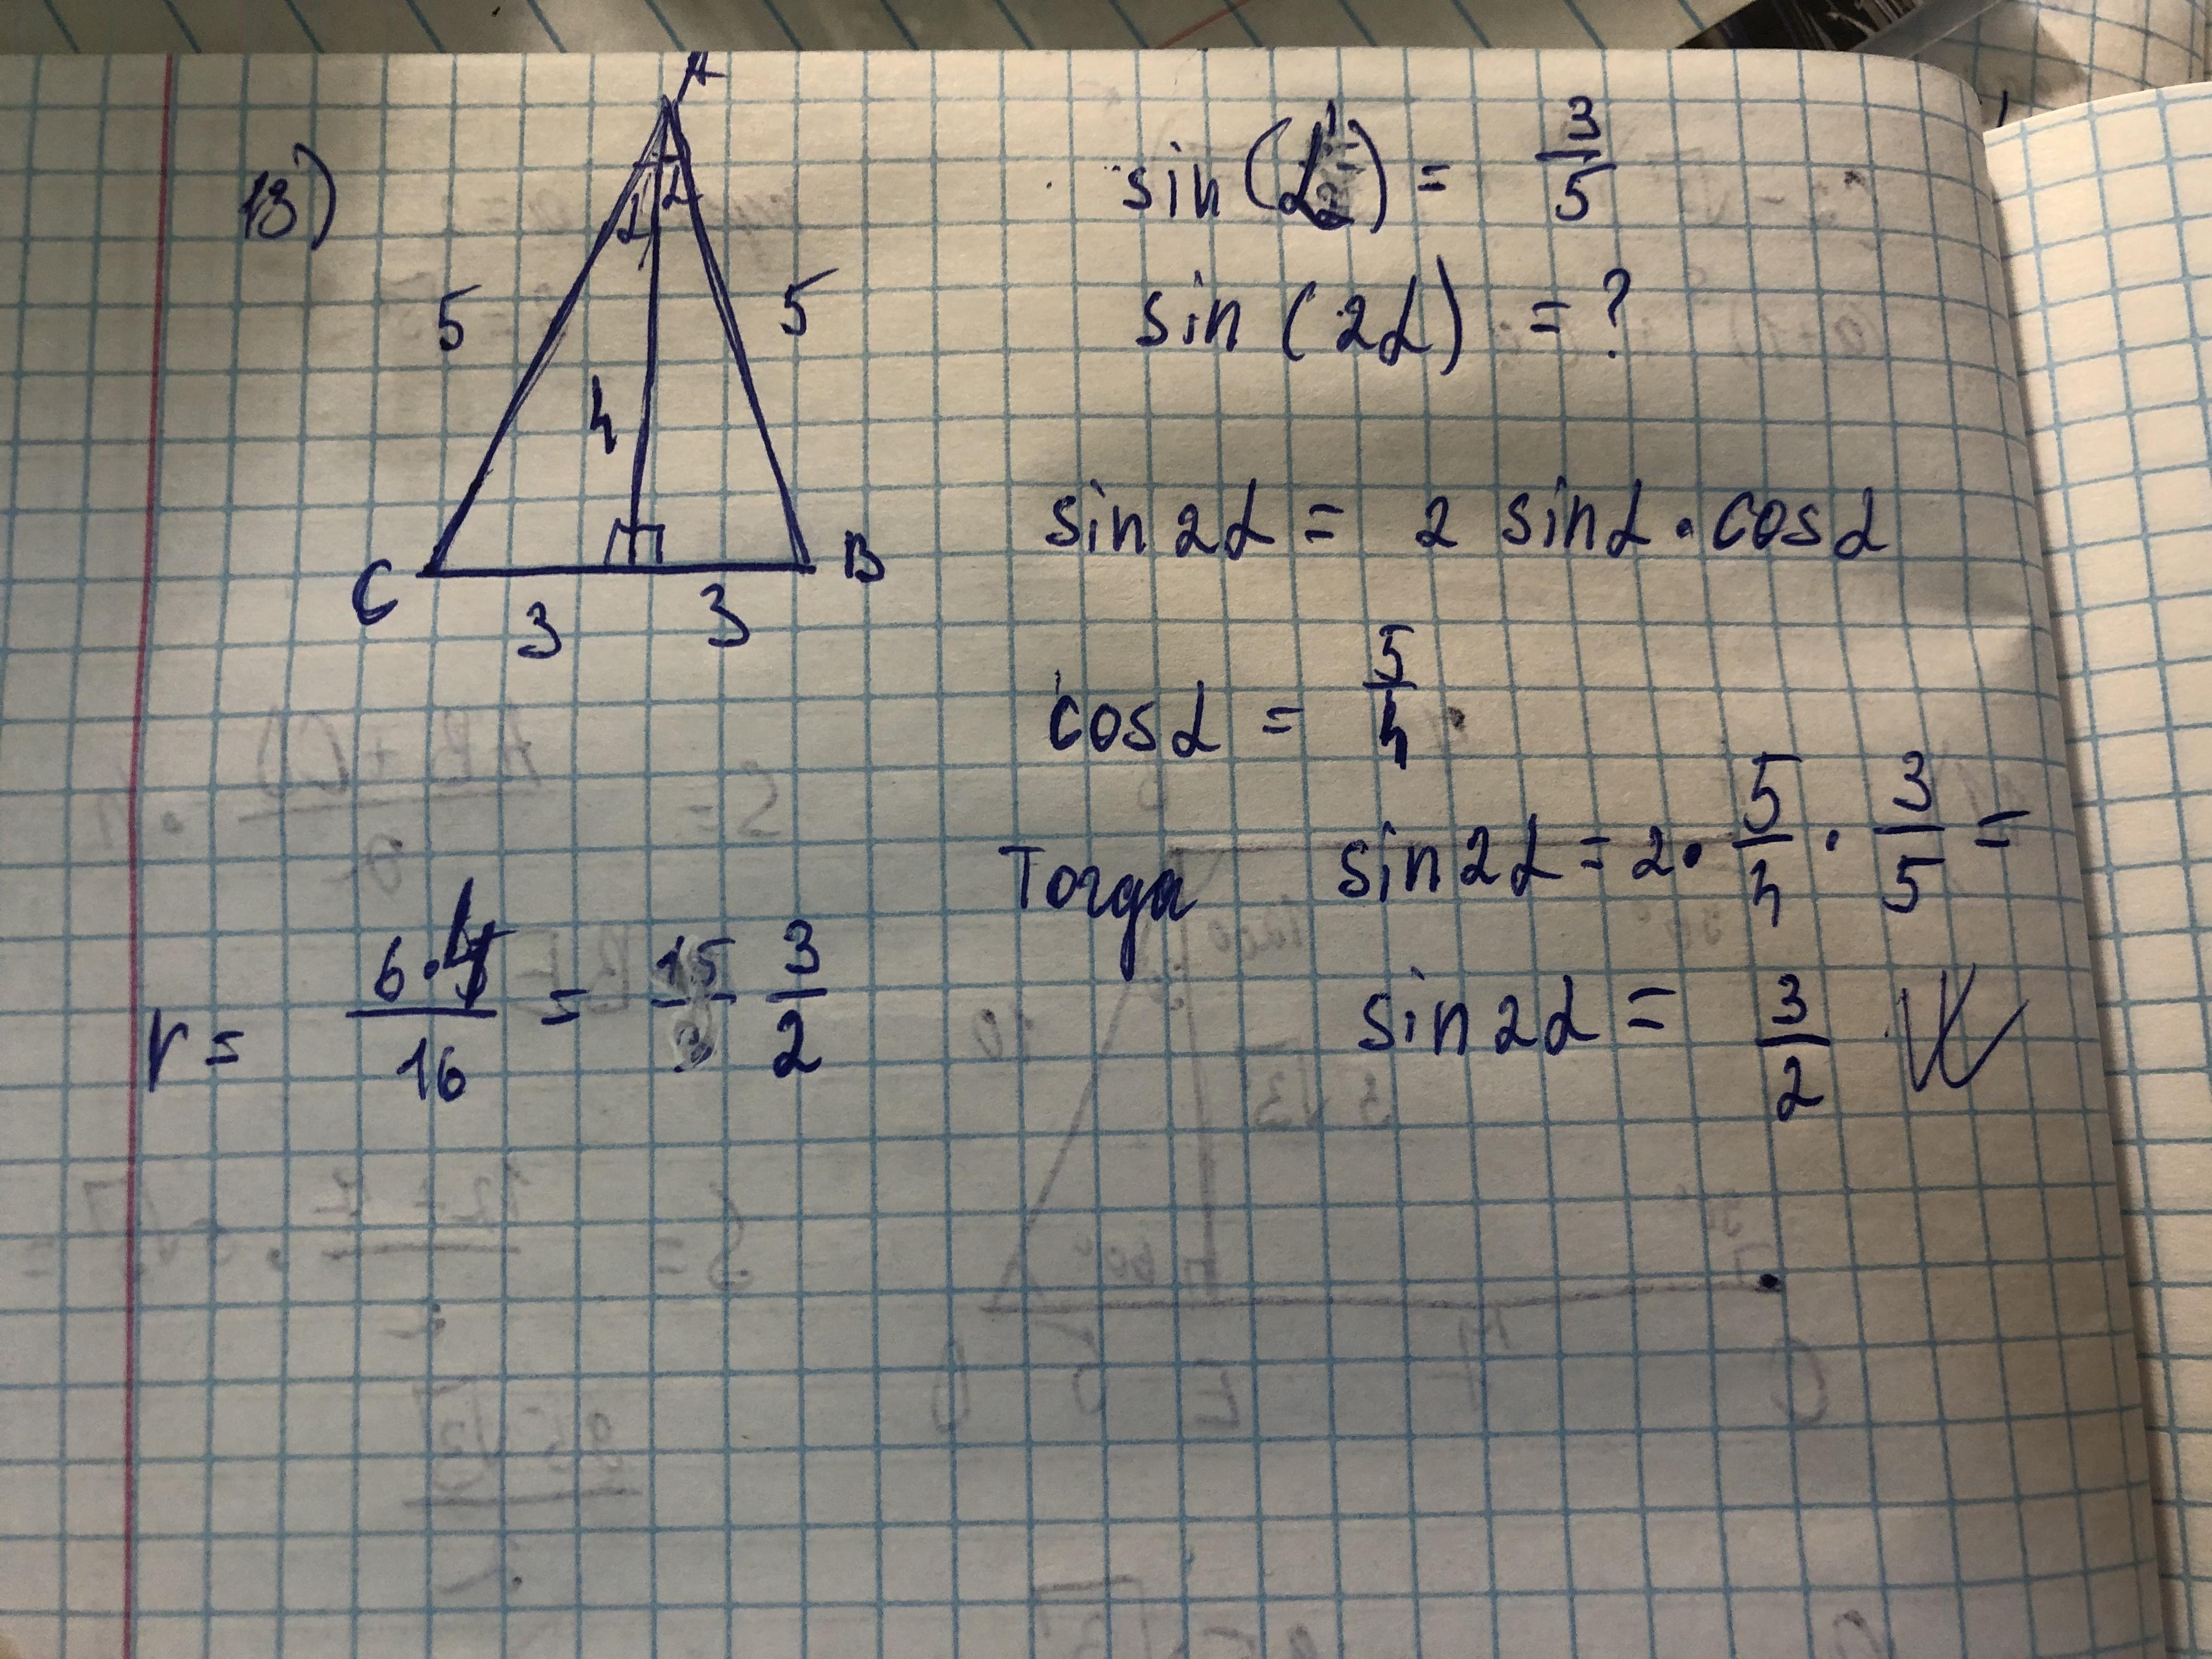 13)
A
α α
5 5
4
C B
3 3
sin(α) = 3/5
sin(2α) = ?
sin2α = 2 sinα · cosα
cosα = 5/4
Тогда sin2α = 2 · 5/4 · 3/5 =
sin2α = 3/2
r = 6·4/16 = 3/2